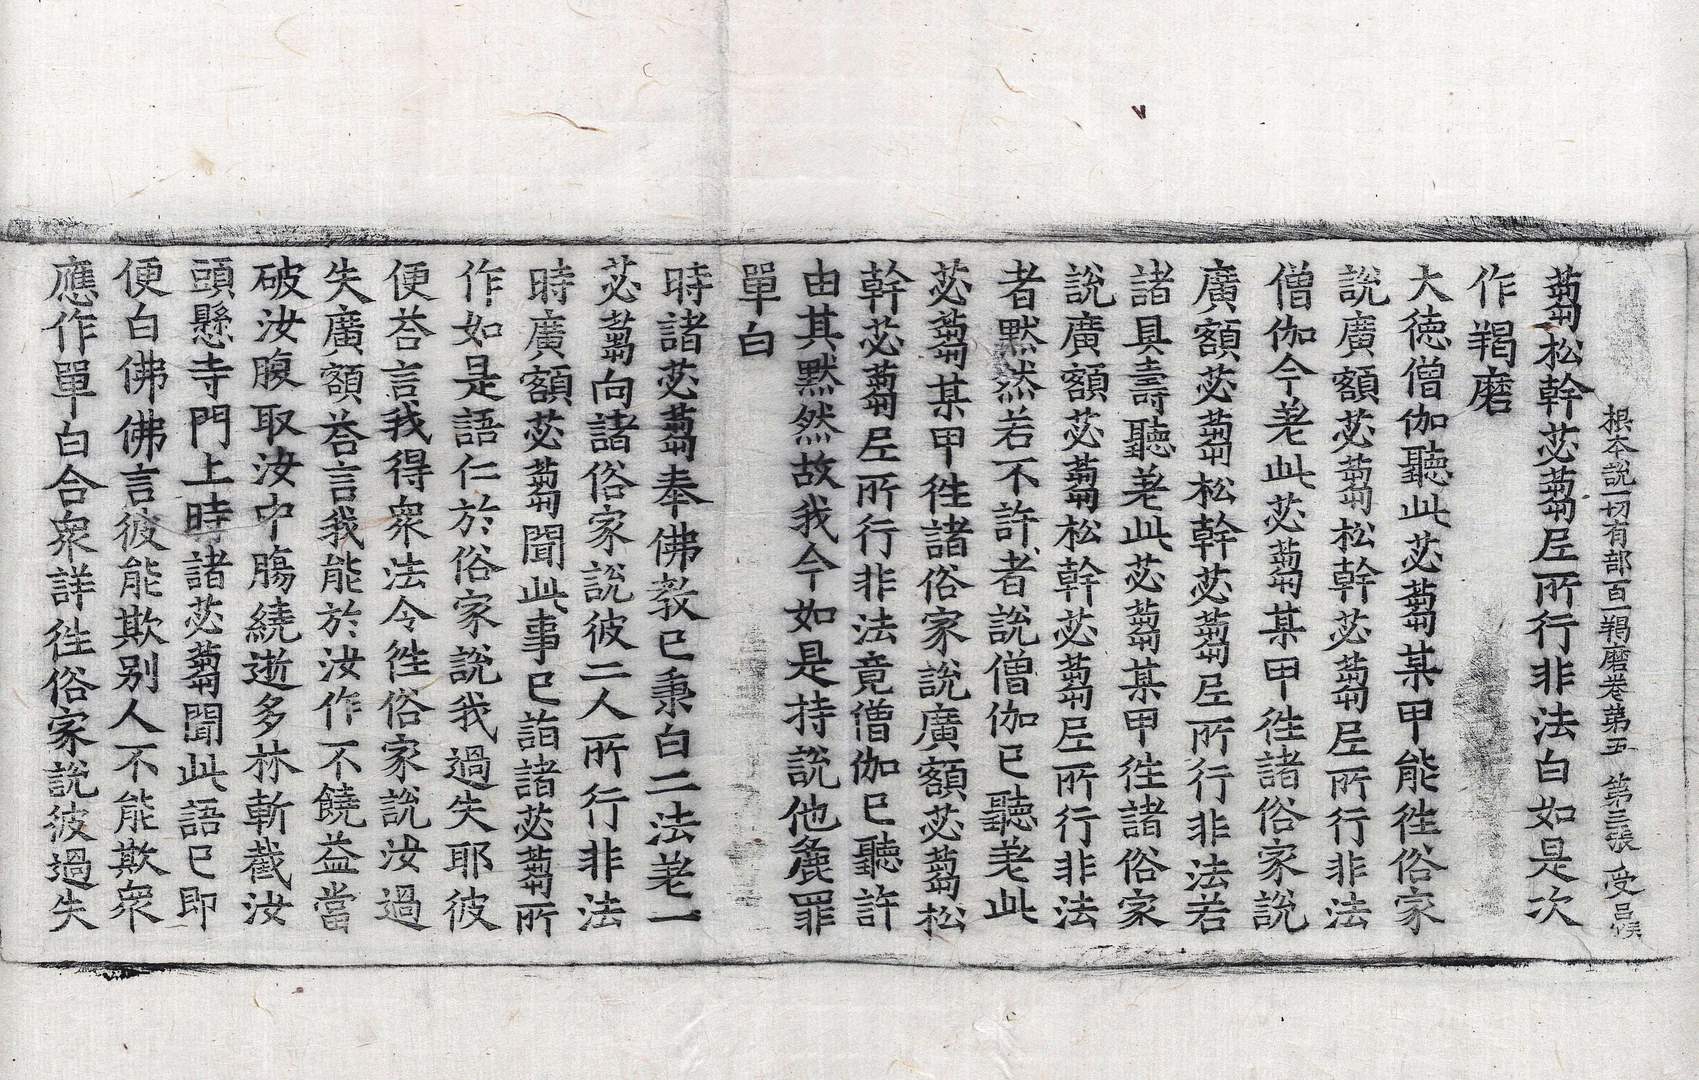 根本說一切有部百一羯磨卷第五　第三張　受
蒭松幹苾蒭尼所行非法白如是次
作羯磨
大德僧伽聽此苾蒭某甲能往俗家
說廣額苾蒭松幹苾蒭尼所行非法
僧伽今差此苾蒭某甲往諸俗家說
廣額苾蒭松幹苾蒭尼所行非法若
諸具壽聽差此苾蒭某甲往諸俗家
說廣額苾蒭松幹苾蒭尼所行非法
者默然若不許者說僧伽已聽差此
苾蒭某甲往諸俗家說廣額苾蒭松
幹苾蒭尼所行非法竟僧伽已聽許
由其默然故我今如是持說他麁罪
單白
時諸苾蒭奉佛教已秉白二法差一
苾蒭向諸俗家說彼二人所行非法
時廣額苾蒭聞此事已詣諸苾蒭所
作如是語仁於俗家說我過失耶彼
便荅言我得衆法令往俗家說汝過
失廣額荅言我能於汝作不饒益當
破汝腹取汝中膓繞逝多林斬截汝
頭懸寺門上時諸苾蒭聞此語已即
便白佛佛言彼能欺別人不能欺衆
應作單白合衆詳往俗家說彼過失